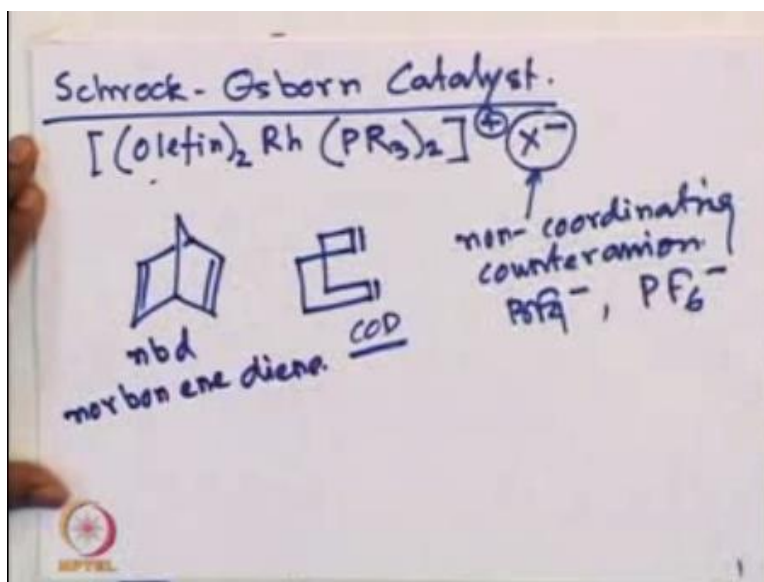 Schrock - Osborn Catalyst.
[(Olefin)₂ Rh (PR₃)₂]⊕ X⁻
non-coordinating
counteranion
BF₄⁻, PF₆⁻
nbd
COD
norbon ene diene.
NPTEL
1